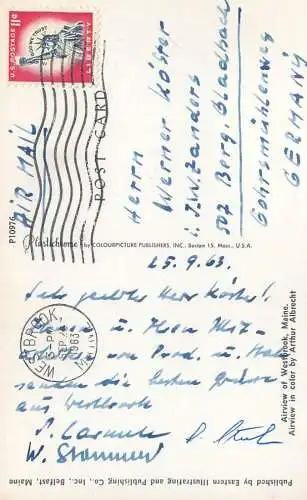 U.S. POSTAGE 11¢
LIBERTY
IN GOD WE TRUST
AIR MAIL
POST CARD
Herrn
Werner Köster
i. J.W. Zanders
507 Berg. Gladbach
Gohrsmühlenweg
GERMANY
P10976
Plastichrome by COLOURPICTURE PUBLISHERS, INC., Boston 15, Mass., U.S.A.
25.9.63.
Sehr geehrter Herr Köster!
u. Ihren Mit-
von
senden die besten Grüsse
aus Westbrook
WESTBROOK,
SEP
1963
P.M
Airview of Westbrook, Maine.
Airview in color by Arthur Albrecht
Published by Eastern Illustrating and Publishing Co., Inc., Belfast, Maine